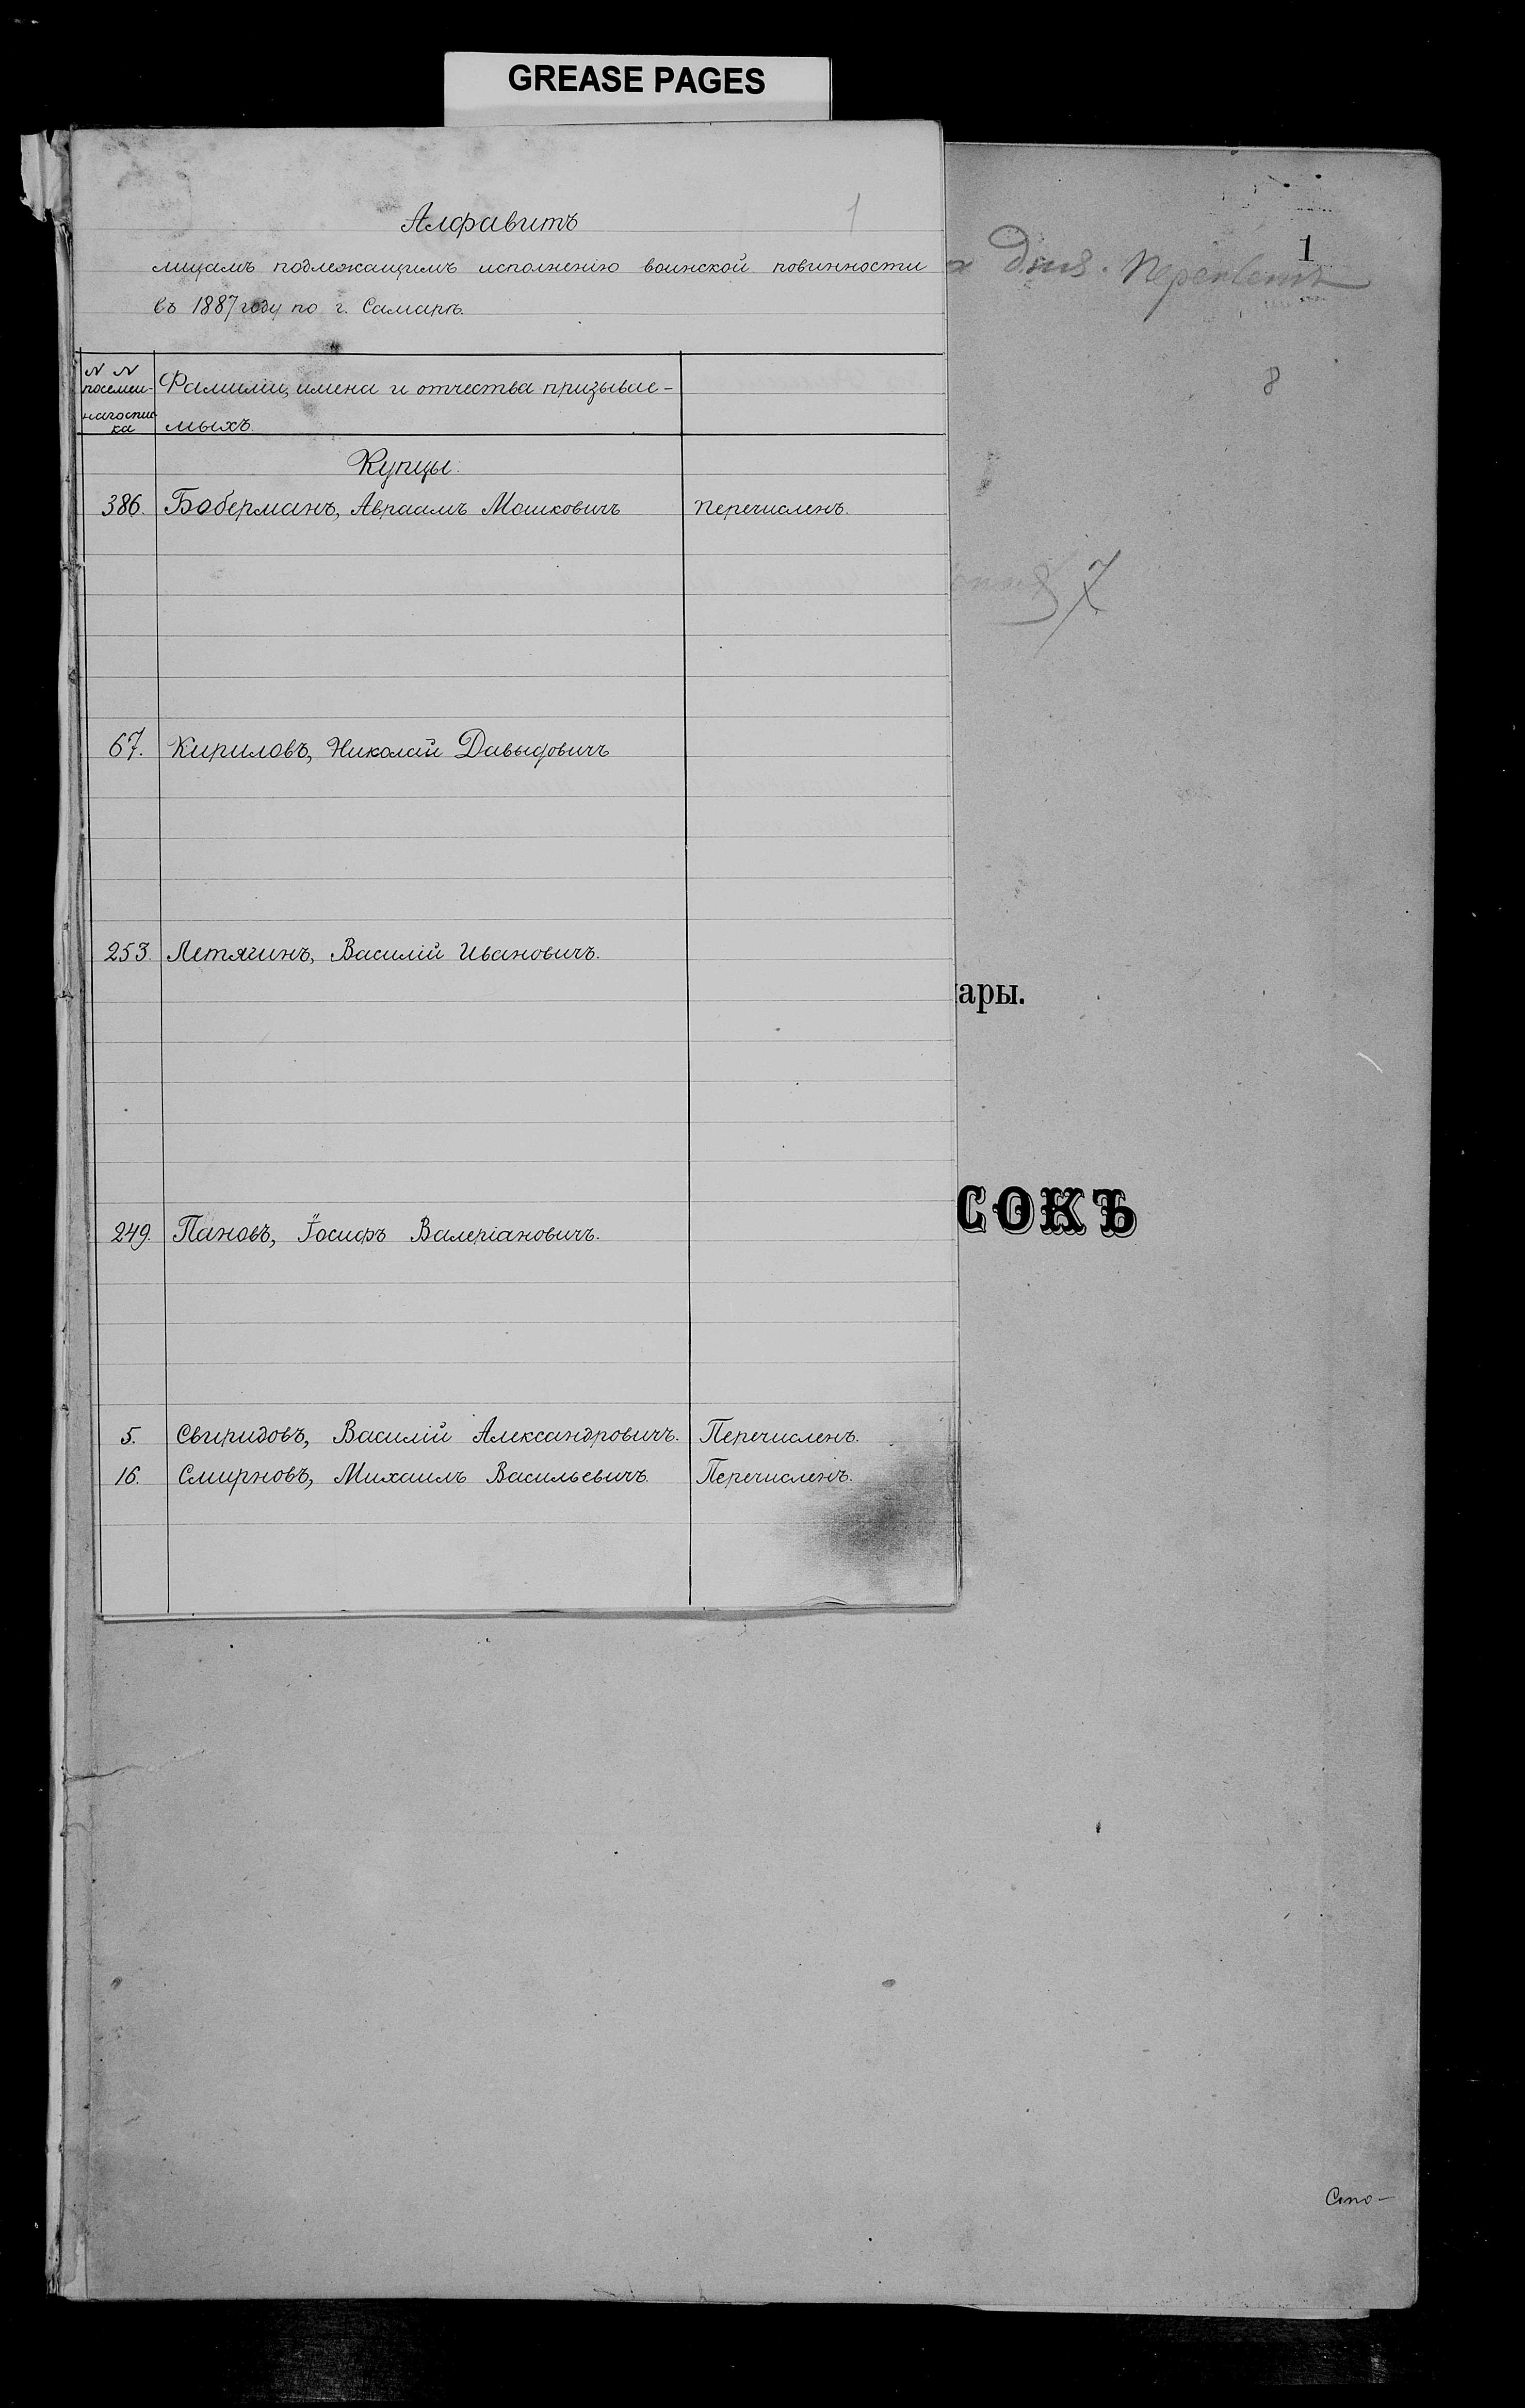 GREASE PAGES
1
Алфавитъ
лицамъ подлежащимъ исполненію воинской повинности
въ 1887 году по г. Самарѣ.
N N
посемей-
нагоспис
ка
Фамиліи, имена и отчества призывае-
мыхъ.
Купцы.
386. Боберманъ, Авраамъ Мошковичъ перечисленъ.
67. Кириловъ, Николай Давыдовичъ
253. Летягинъ, Василій Ивановичъ.
249. Пановъ, Іосифъ Валеріановичъ.
5. Свиридовъ, Василій Александровичъ. Перечисленъ.
16. Смирновъ, Михаилъ Васильевичъ. Перечисленъ.
1
Дня.
8
7
ары.
СОКЪ
Сто-